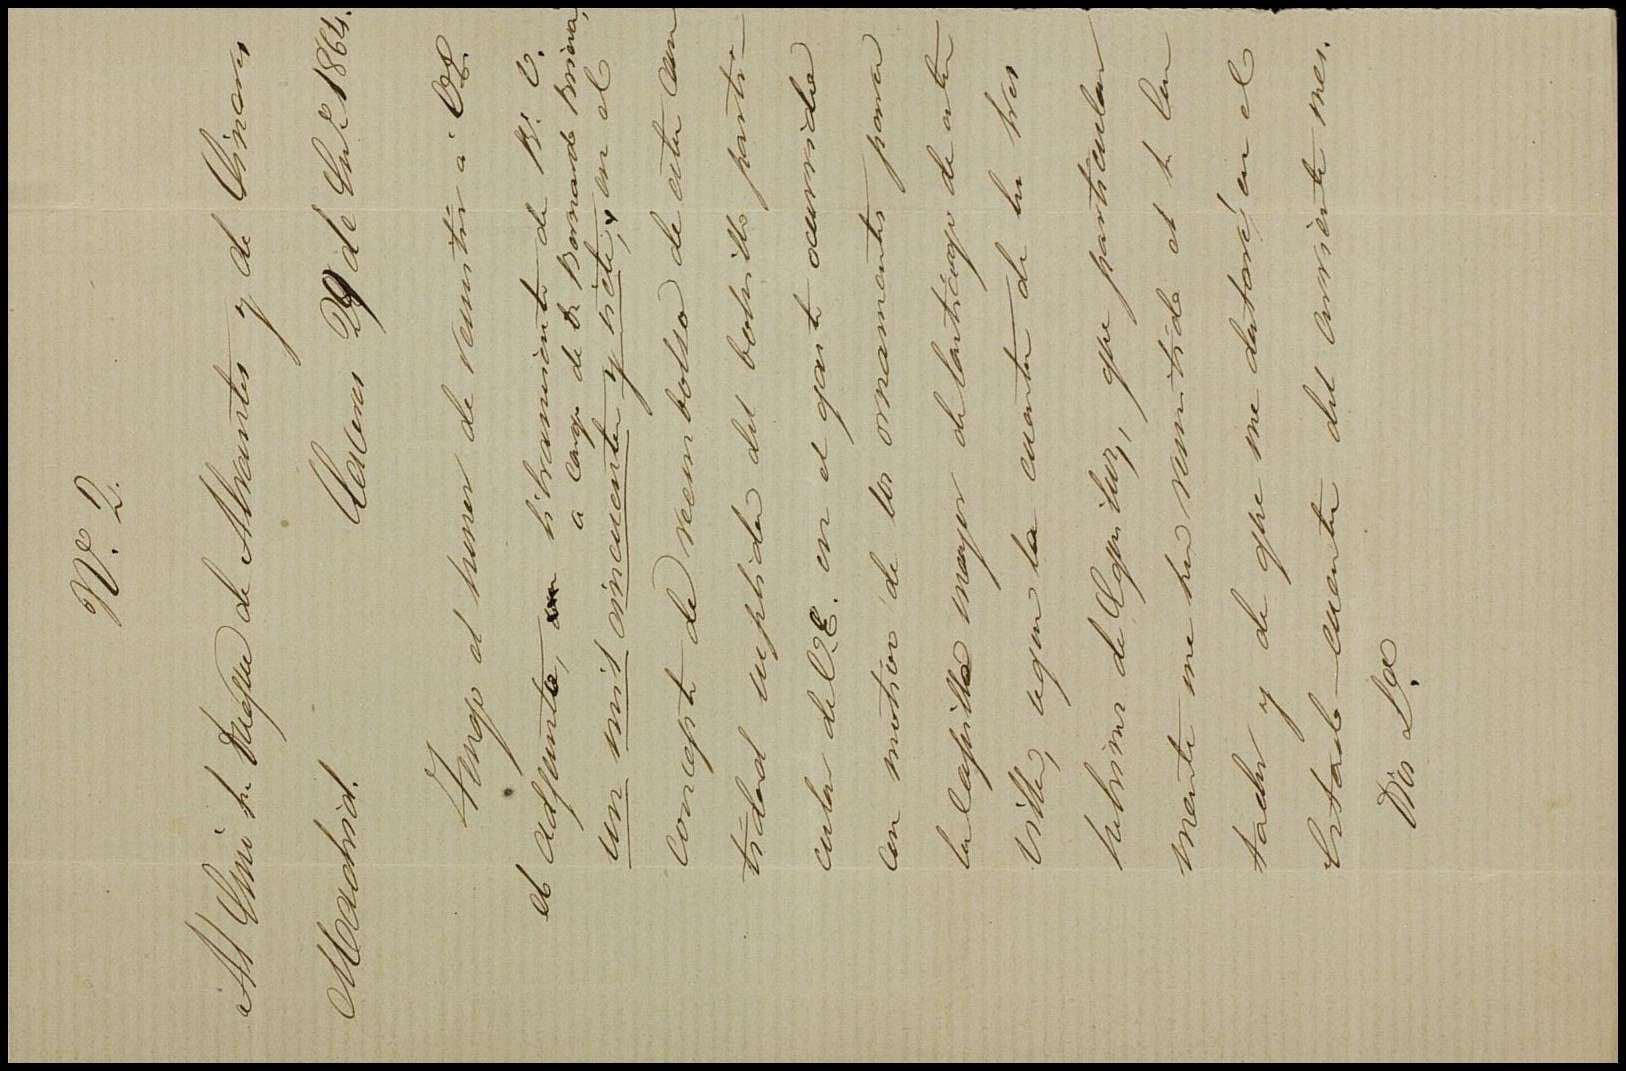 N.º 2.
Al Exmo Sr. Duque de Abrantes y de Linares
Madrid. Caceres 29 de En.º 1864.
Tengo el honor de remitir a V.E.
el adjunto, libramiento de R.s V.
a cargo de D. Bernardo
un mil cincuenta y siete, en el
concepto de reembolso de esta can
tidad suplida del bolsillo parti-
cular de V.E. en el gasto ocurrido
con motivo de los ornamentos para
la Capilla mayor de Santiago de esta
Villa, segun la cuenta de las tres
que particular
mente me ha remitido el Sr Con
tador y de que me dataré en el
Estado-cuenta del corriente mes.
Dios &.ª